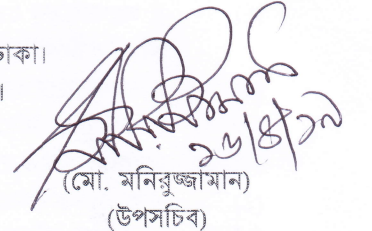 ঢাকা।
।
১৬/৪/১৯
(মো. মনিরুজ্জামান)
(উপসচিব)